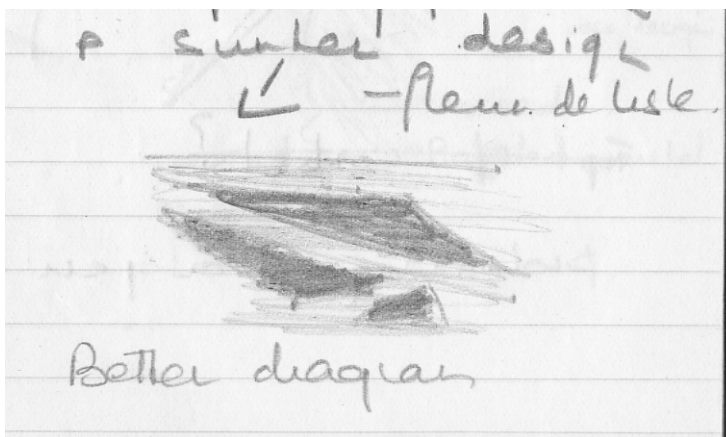 P sunken design
- fleur de lisle.
Better diagram